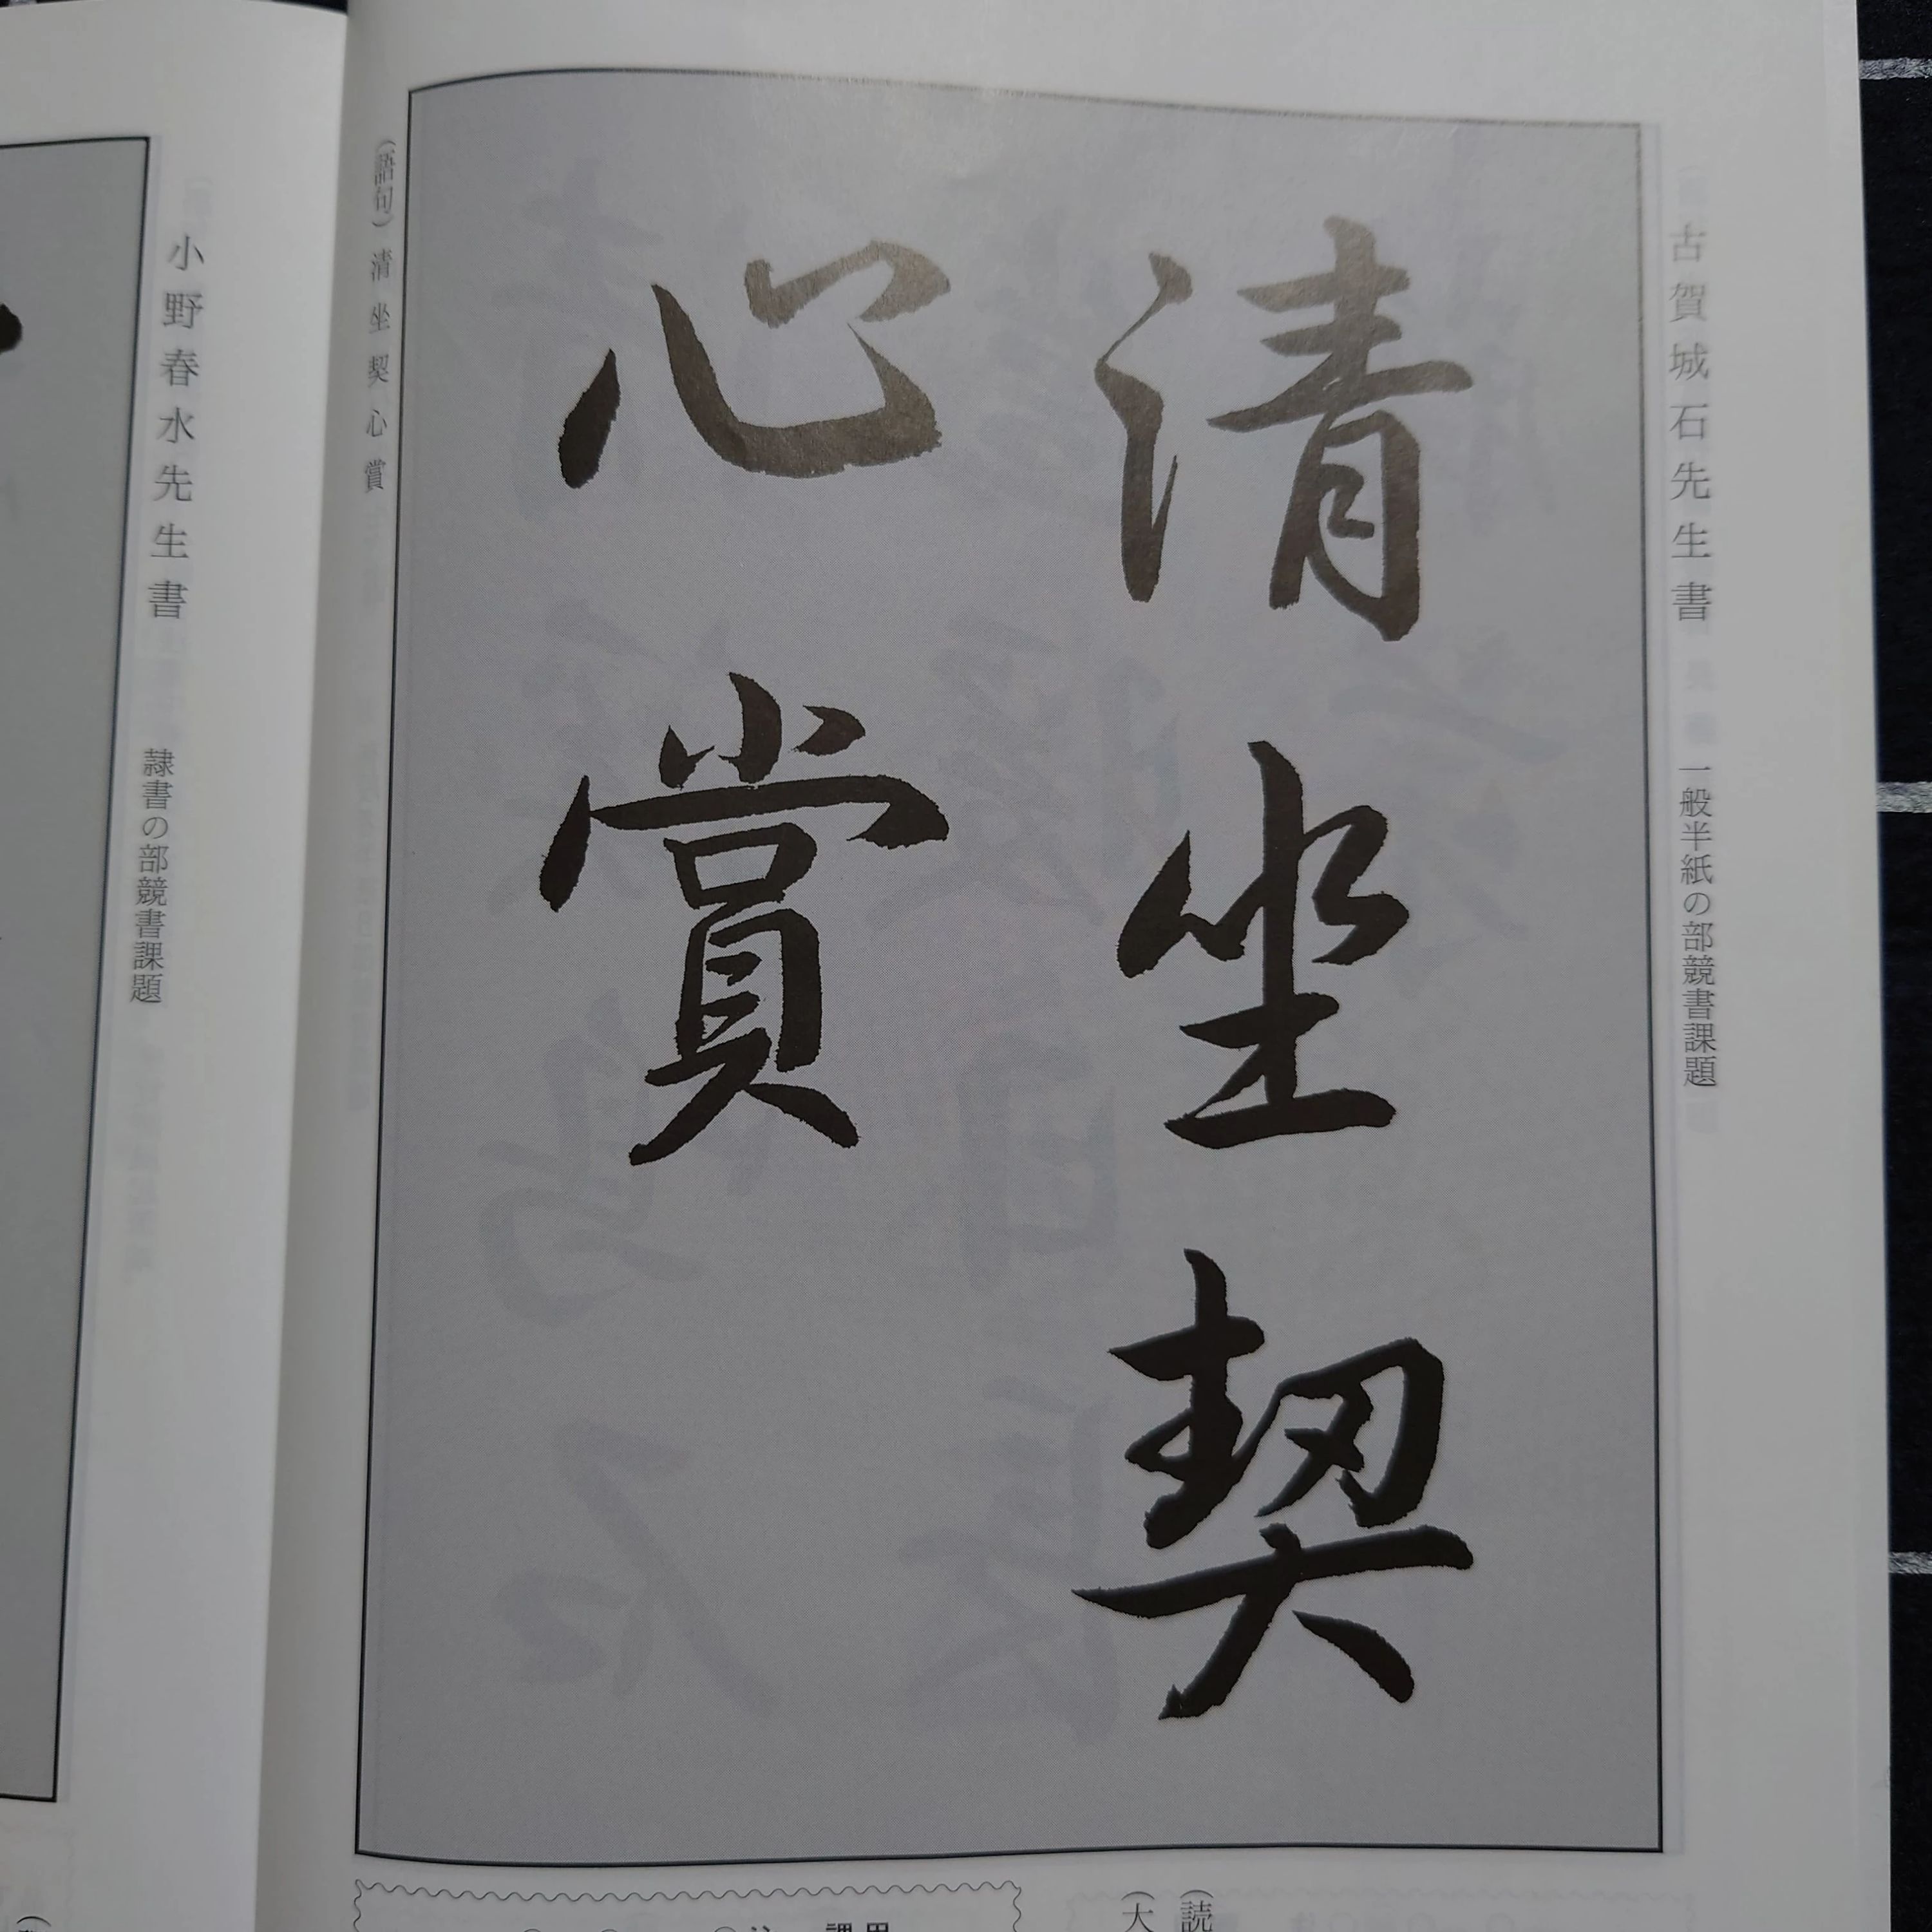 古賀城石先生書 一般半紙の部競書課題
清坐契
心賞
(語句)清坐契心賞
読
(大
課
小野春水先生書 隷書の部競書課題